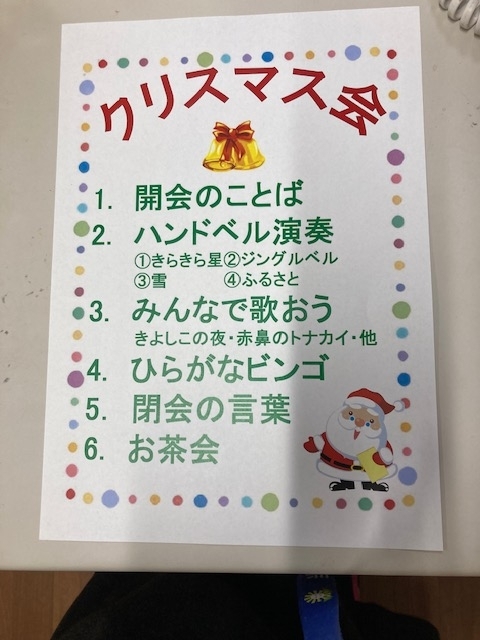 クリスマス会
1. 開会のことば
2. ハンドベル演奏
①きらきら星②ジングルベル
③雪 ④ふるさと
3. みんなで歌おう
きよしこの夜・赤鼻のトナカイ・他
4. ひらがなビンゴ
5. 閉会の言葉
6. お茶会